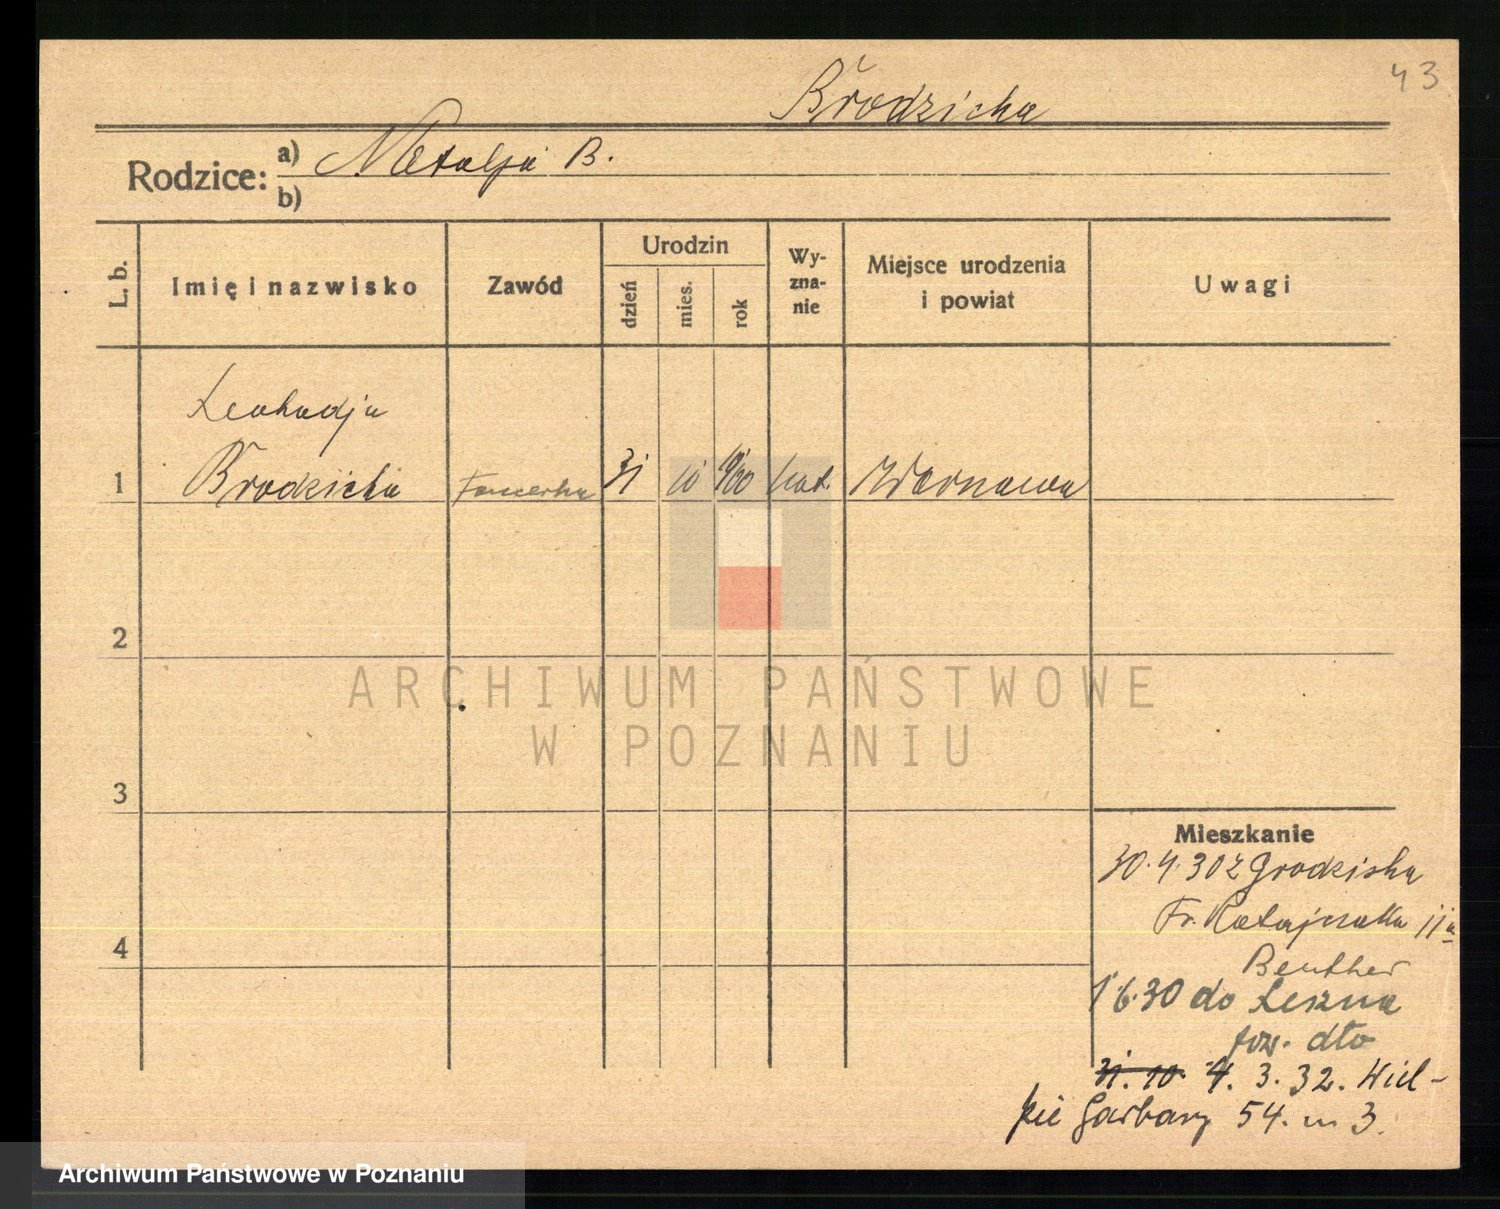 43
Brodzicka
Rodzice: a) Natalja B.
b)
L. b.
Imię i nazwisko
Zawód
Urodzin
dzień
mies.
rok
Wy-
zna-
nie
Miejsce urodzenia
i powiat
Uwagi
Leokadja
1 Brodzicka 31 10 1900 kat.
2
3
4
Mieszkanie
30.4.30 z Grodziska
Fr. Ratajczaka 11a
Beuther
1.6.30 do Leszna
pow. dto
31. 10. 4. 3. 32. Wiel-
kie Garbary 54. m 3.
ARCHIWUM PAŃSTWOWE
W POZNANIU
Archiwum Państwowe w Poznaniu